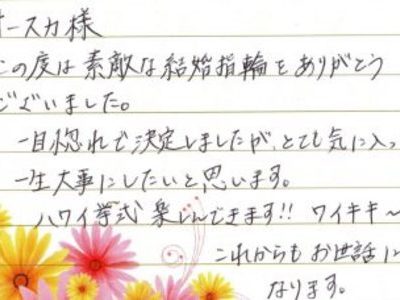 ースカ様
この度は素敵な結婚指輪をありがとう
ございました。
一目惚れで決定しましたが、とても気に入っ
一生大事にしたいと思います。
ハワイ挙式楽しんできます!! ワイキキ〜
これからもお世話に
なります。